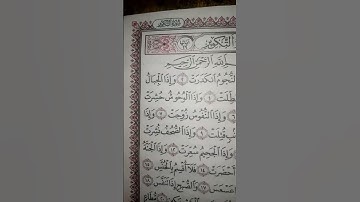 سورة التكوير
التكوير
بسم الله الرحمن الرحيم
النجوم انكدرت ٢ وإذا الجبال
عطلت ٤ وإذا الوحوش حشرت
وإذا النفوس زوجت ٧ وإذا
قتلت ٩ وإذا الصحف نشرت
وإذا الجحيم سعرت ١٢ وإذا الجنة
أحضرت ١٤ فلا أقسم بالخنس ١٥
عسعس ١٧ والصبح إذا تنفس ١٨
مطاع